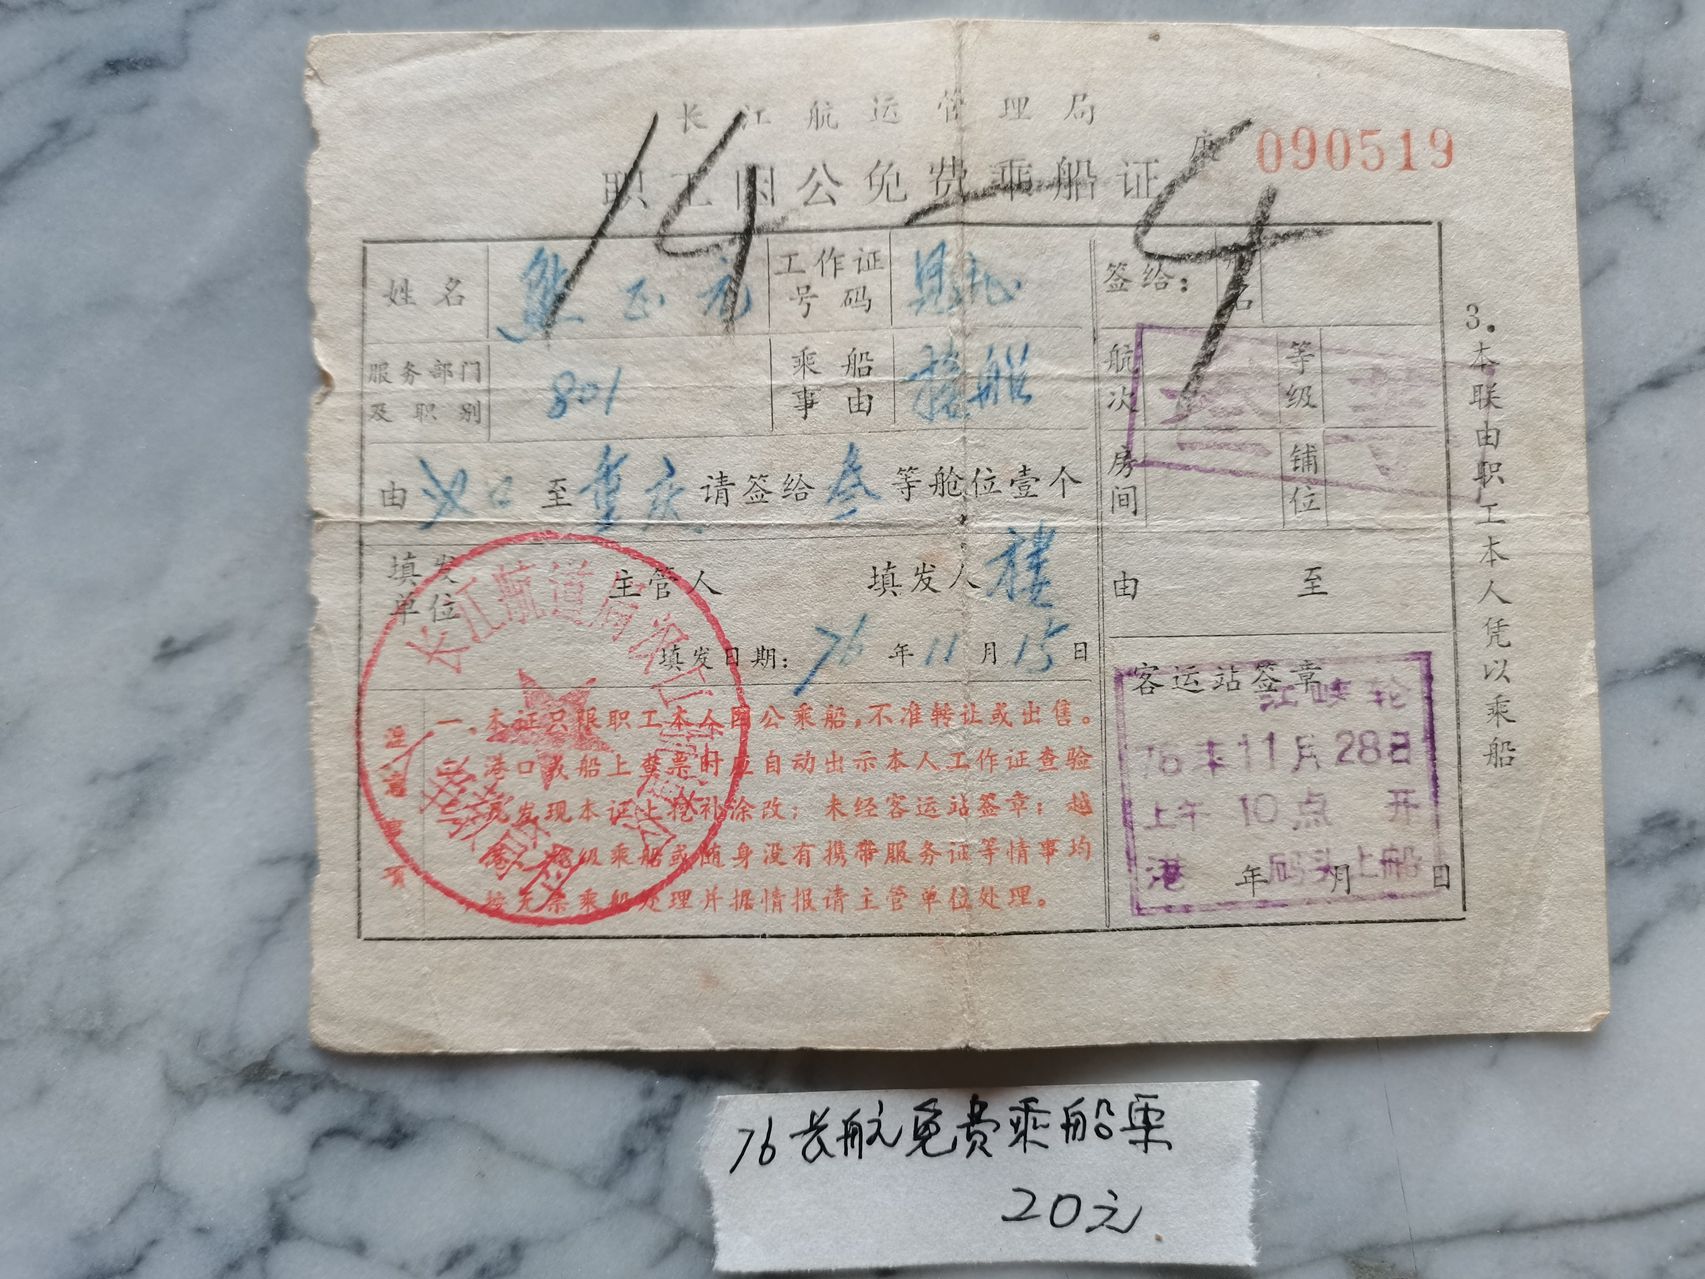 长江航运管理局
职工因公免费乘船证
090519
14-4
姓名 熊正元 工作证号码
服务部门及职别 801 乘船事由 接船
由 汉口 至 重庆 请签给 叁 等舱位壹个
填发单位 主管人 填发人
填发日期: 76 年 11 月 15 日
注意事项
一、本证只限职工本人因公乘船,不准转让或出售。
港口或船上查票时应自动出示本人工作证查验
发现本证上挖补涂改;未经客运站签章;越
级乘船或随身没有携带服务证等情事均
按无票乘船处理并据情报请主管单位处理。
签给: 姓名
航次 等级
叁等
房间 铺位
由 至
客运站签章
年 月 日
江峡轮
76年11月28日
上午10点 开
港 码头上船
3.本联由职工本人凭以乘船
长江航道局
76长航免费乘船票
20元